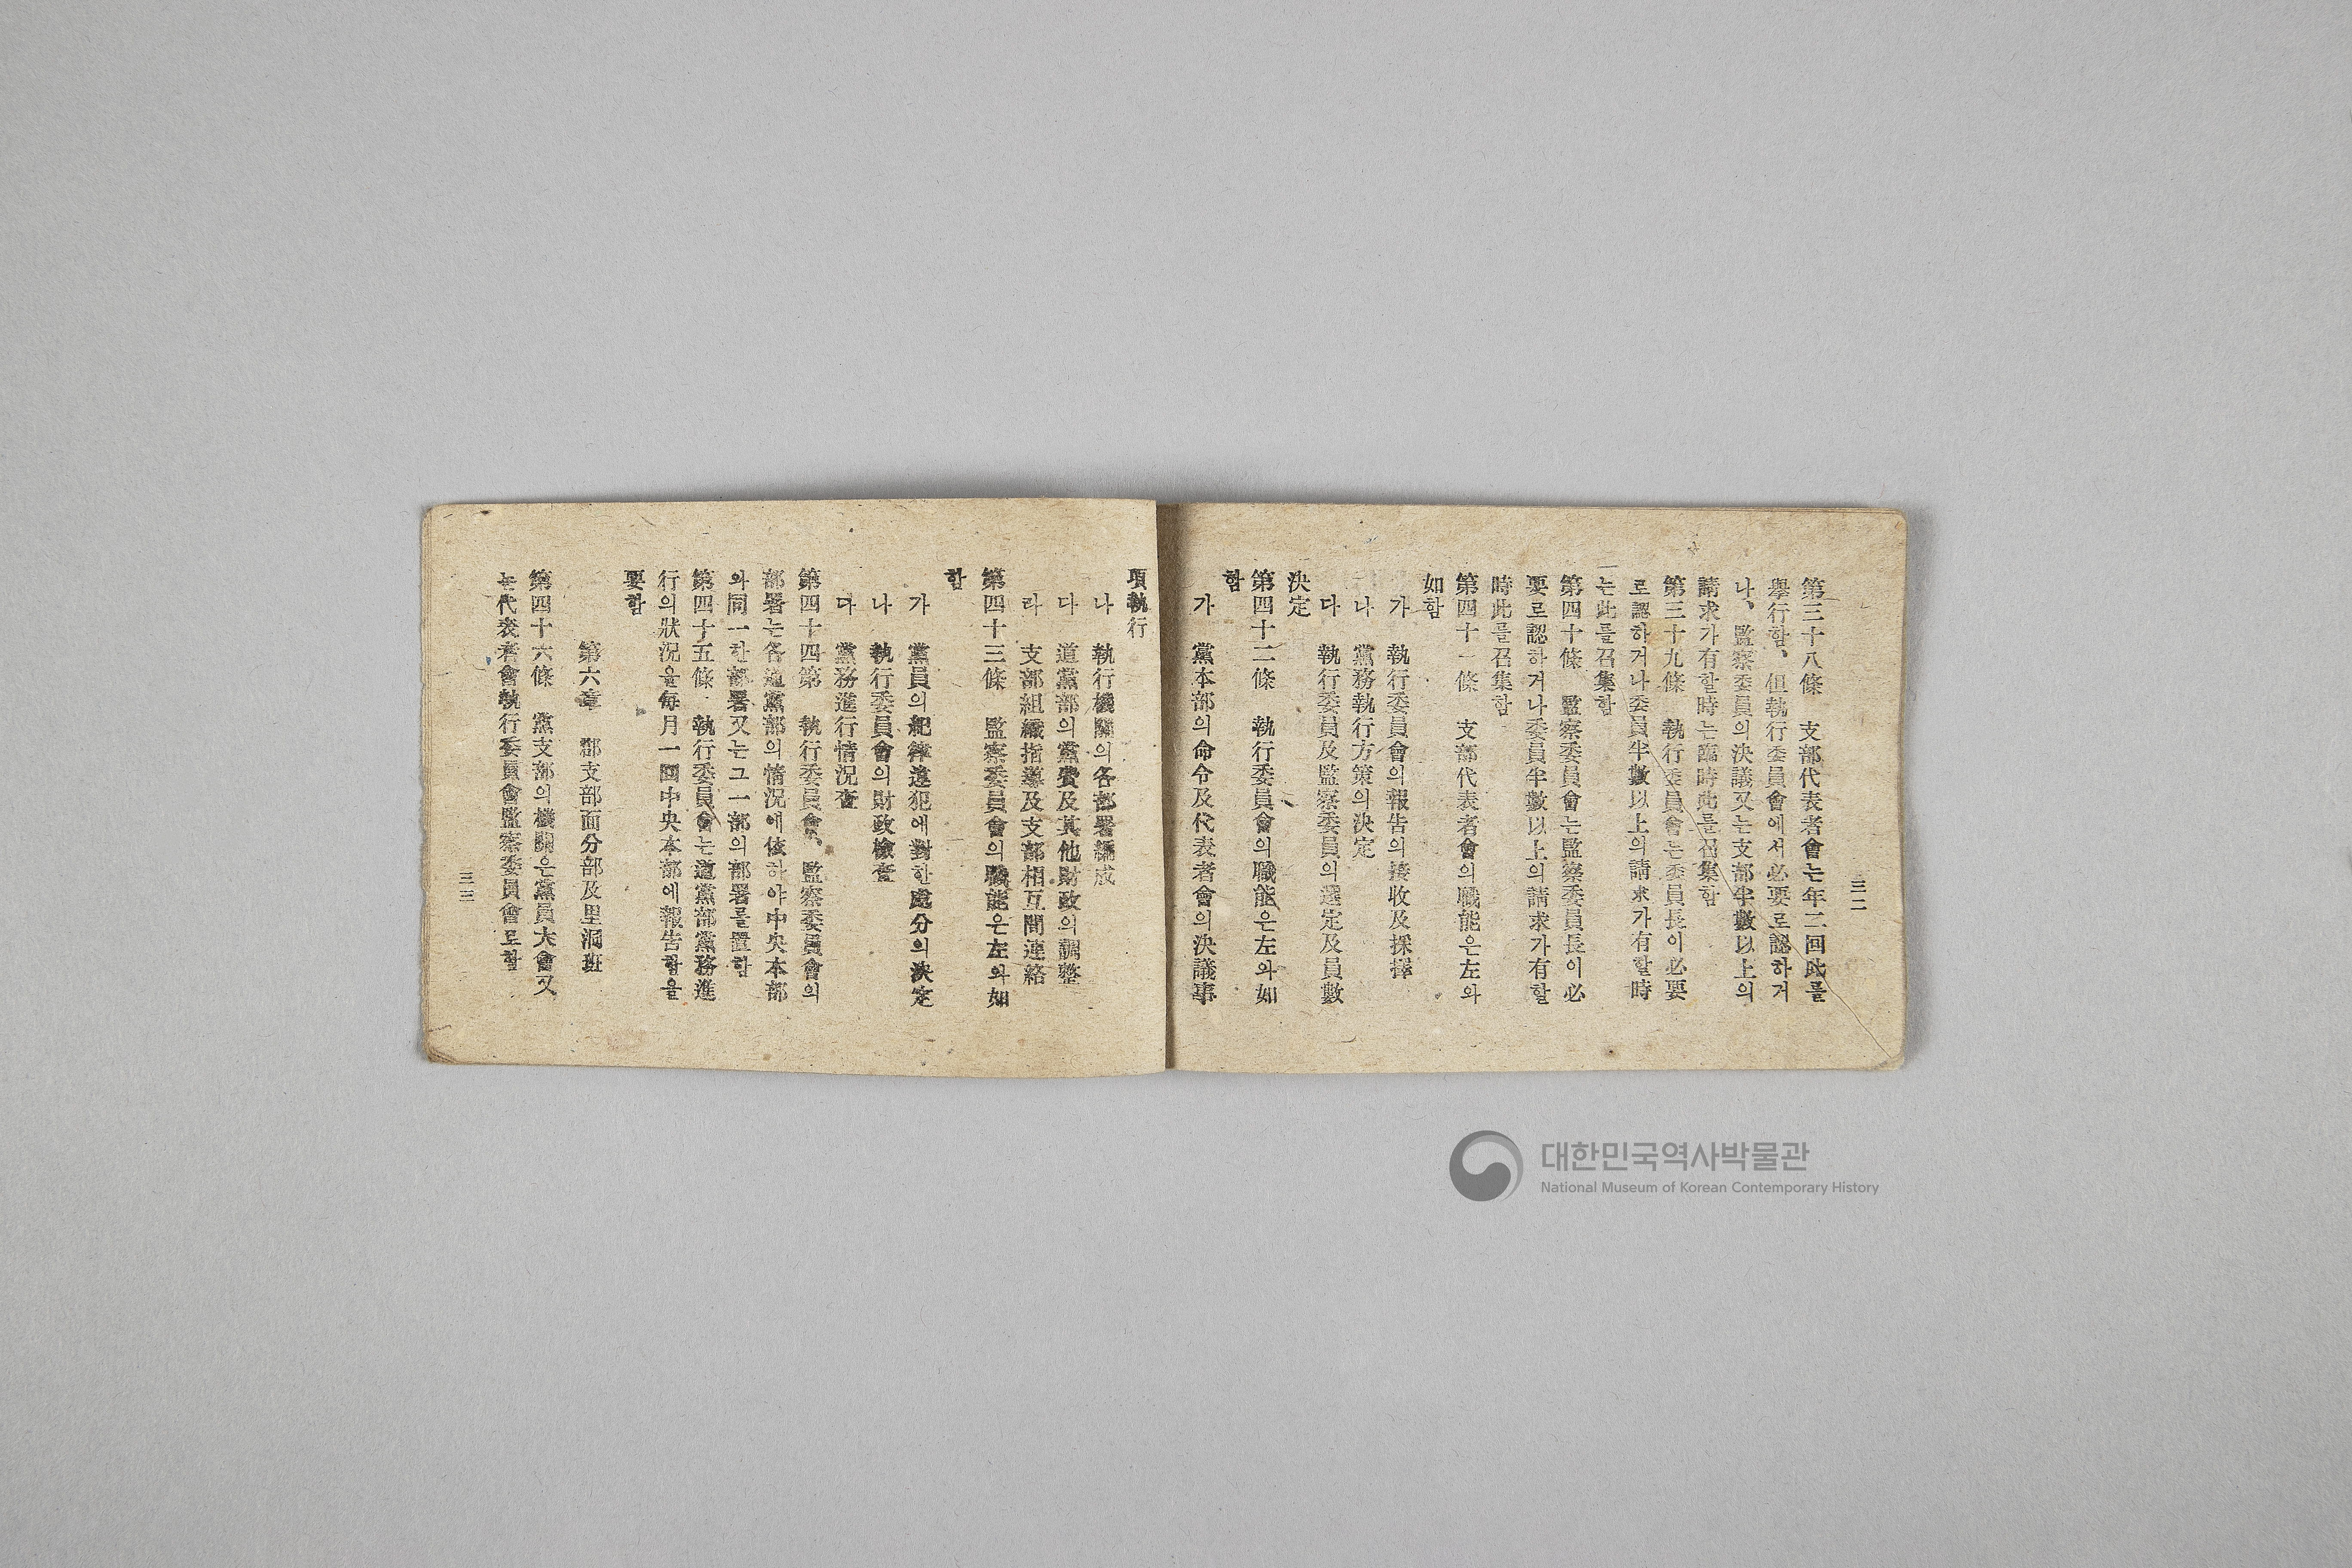 三二
第三十八條　支部代表者會는年二回此를
擧行함、但執行委員會에서必要로認하거
나、監察委員의決議又는支部半數以上의
請求가有할時는臨時此를召集함
第三十九條　執行委員會는委員長이必要
로認하거나委員半數以上의請求가有할時
는此를召集함
第四十條　監察委員會는監察委員長이必
要로認하거나委員半數以上의請求가有할
時此를召集함
第四十一條　支部代表者會의職能은左와
如함
가　執行委員會의報告의接收及採擇
나　黨務執行方策의決定
다　執行委員及監察委員의選定及員數
決定
第四十二條　執行委員會의職能은左와如
함
가　黨本部의命令及代表者會의決議事
項執行
나　執行機關의各部署編成
다　道黨部의黨費及其他財政의調整
라　支部組織指導及支部相互間連絡
第四十三條　監察委員會의職能은左와如
함
가　黨員의紀律違犯에對한處分의決定
나　執行委員會의財政檢査
다　黨務進行情況査
第四十四第　執行委員會、監察委員會의
部署는各道黨部의情況에依하야中央本部
와同一한部署又는그一部의部署를置함
第四十五條　執行委員會는道黨部黨務進
行의狀況을每月一回中央本部에報告함을
要함
第六章　郡支部面分部及里洞班
第四十六條　黨支部의機關은黨員大會又
는代表者會執行委員會監察委員會로함
三三
대한민국역사박물관
National Museum of Korean Contemporary History